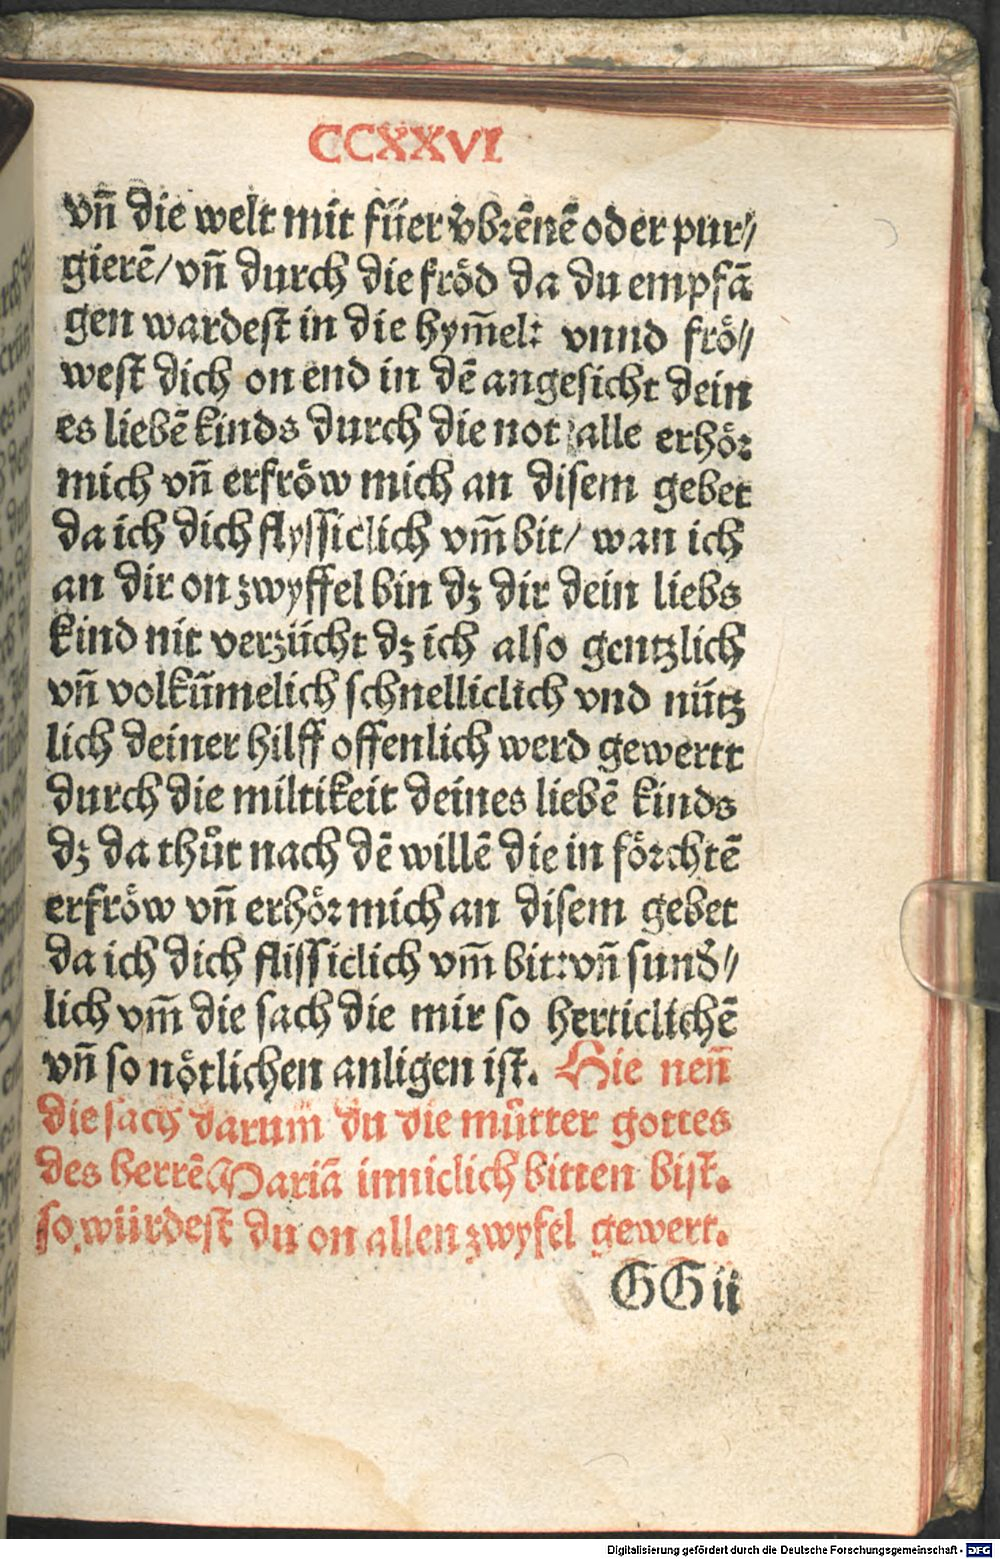 CCXXVI
vñ die welt mit füer v̊brēnē oder pur//
gierē/ vñ durch die fröd da du empfā
gen wardest in die hym̄el: vnnd frö//
west dich on end in dē angesicht dein
es liebē kinds durch die not alle erhör
mich vñ erfröw mich an disem gebet
da ich dich flyssiclich vm̄ bit/ wan ich
an dir on zwyffel bin dz dir dein liebs
kind nit verzücht dz ich also gentzlich
vñ volkūmelich schnelliclich vnd nütz
lich deiner hilff offenlich werd gewertt
durch die miltikeit deines liebē kinds
dz da thůt nach dē willē die in förchtē
erfröw vñ erhör mich an disem gebet
da ich dich flissiclich vm̄ bit: vñ sund̓//
lich vm̄ die sach die mir so herticlichē
vñ so nötlichen anligen ist. Hie neñ
die sach darum̄ du die můtter gottes
des herrē Mariā inniclich bitten bist.
so würdest du on allen zwyfel gewert.
GG ii
Digitalisierung gefördert durch die Deutsche Forschungsgemeinschaft - DFG